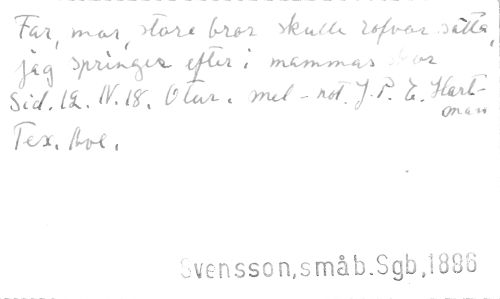 Far, mor, store bror skulle rofvor sätta,
jag springer efter i mammas skor
Sid. 12. IV. 18. Utur. mel-not. J. P. E. Hart-
man
Tex. Avl.
Svensson, småb. Sgb, 1886